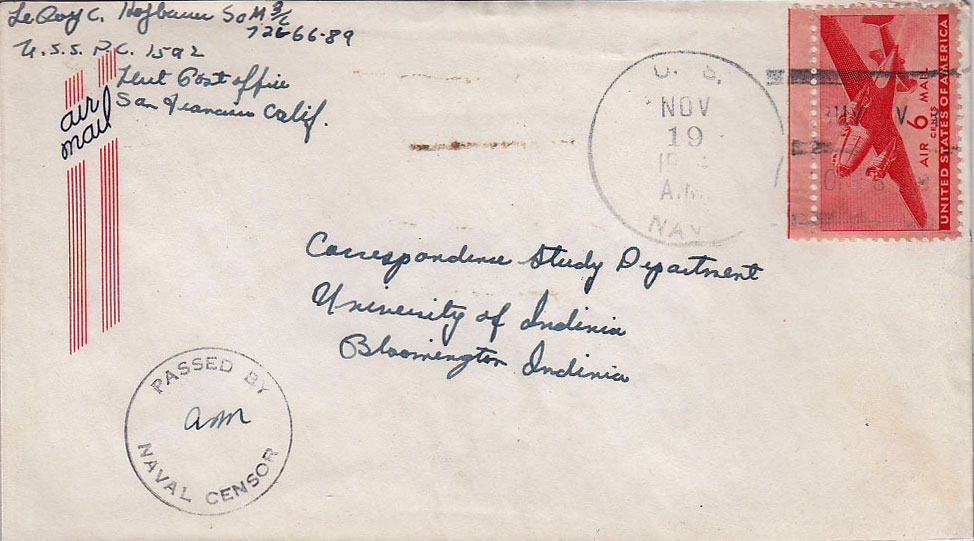 LeRoy C. Hofbauer SoM 3/c
72666-89
U.S.S. P.C. 1592
Fleet Post office
San Francisco Calif.
air
mail
U. S.
NOV
19
A.M.
NAVY
AIR 6 CENTS MAIL
UNITED STATES OF AMERICA
Correspondence Study Department
University of Indinia
Bloomington Indinia
PASSED BY
am
NAVAL CENSOR